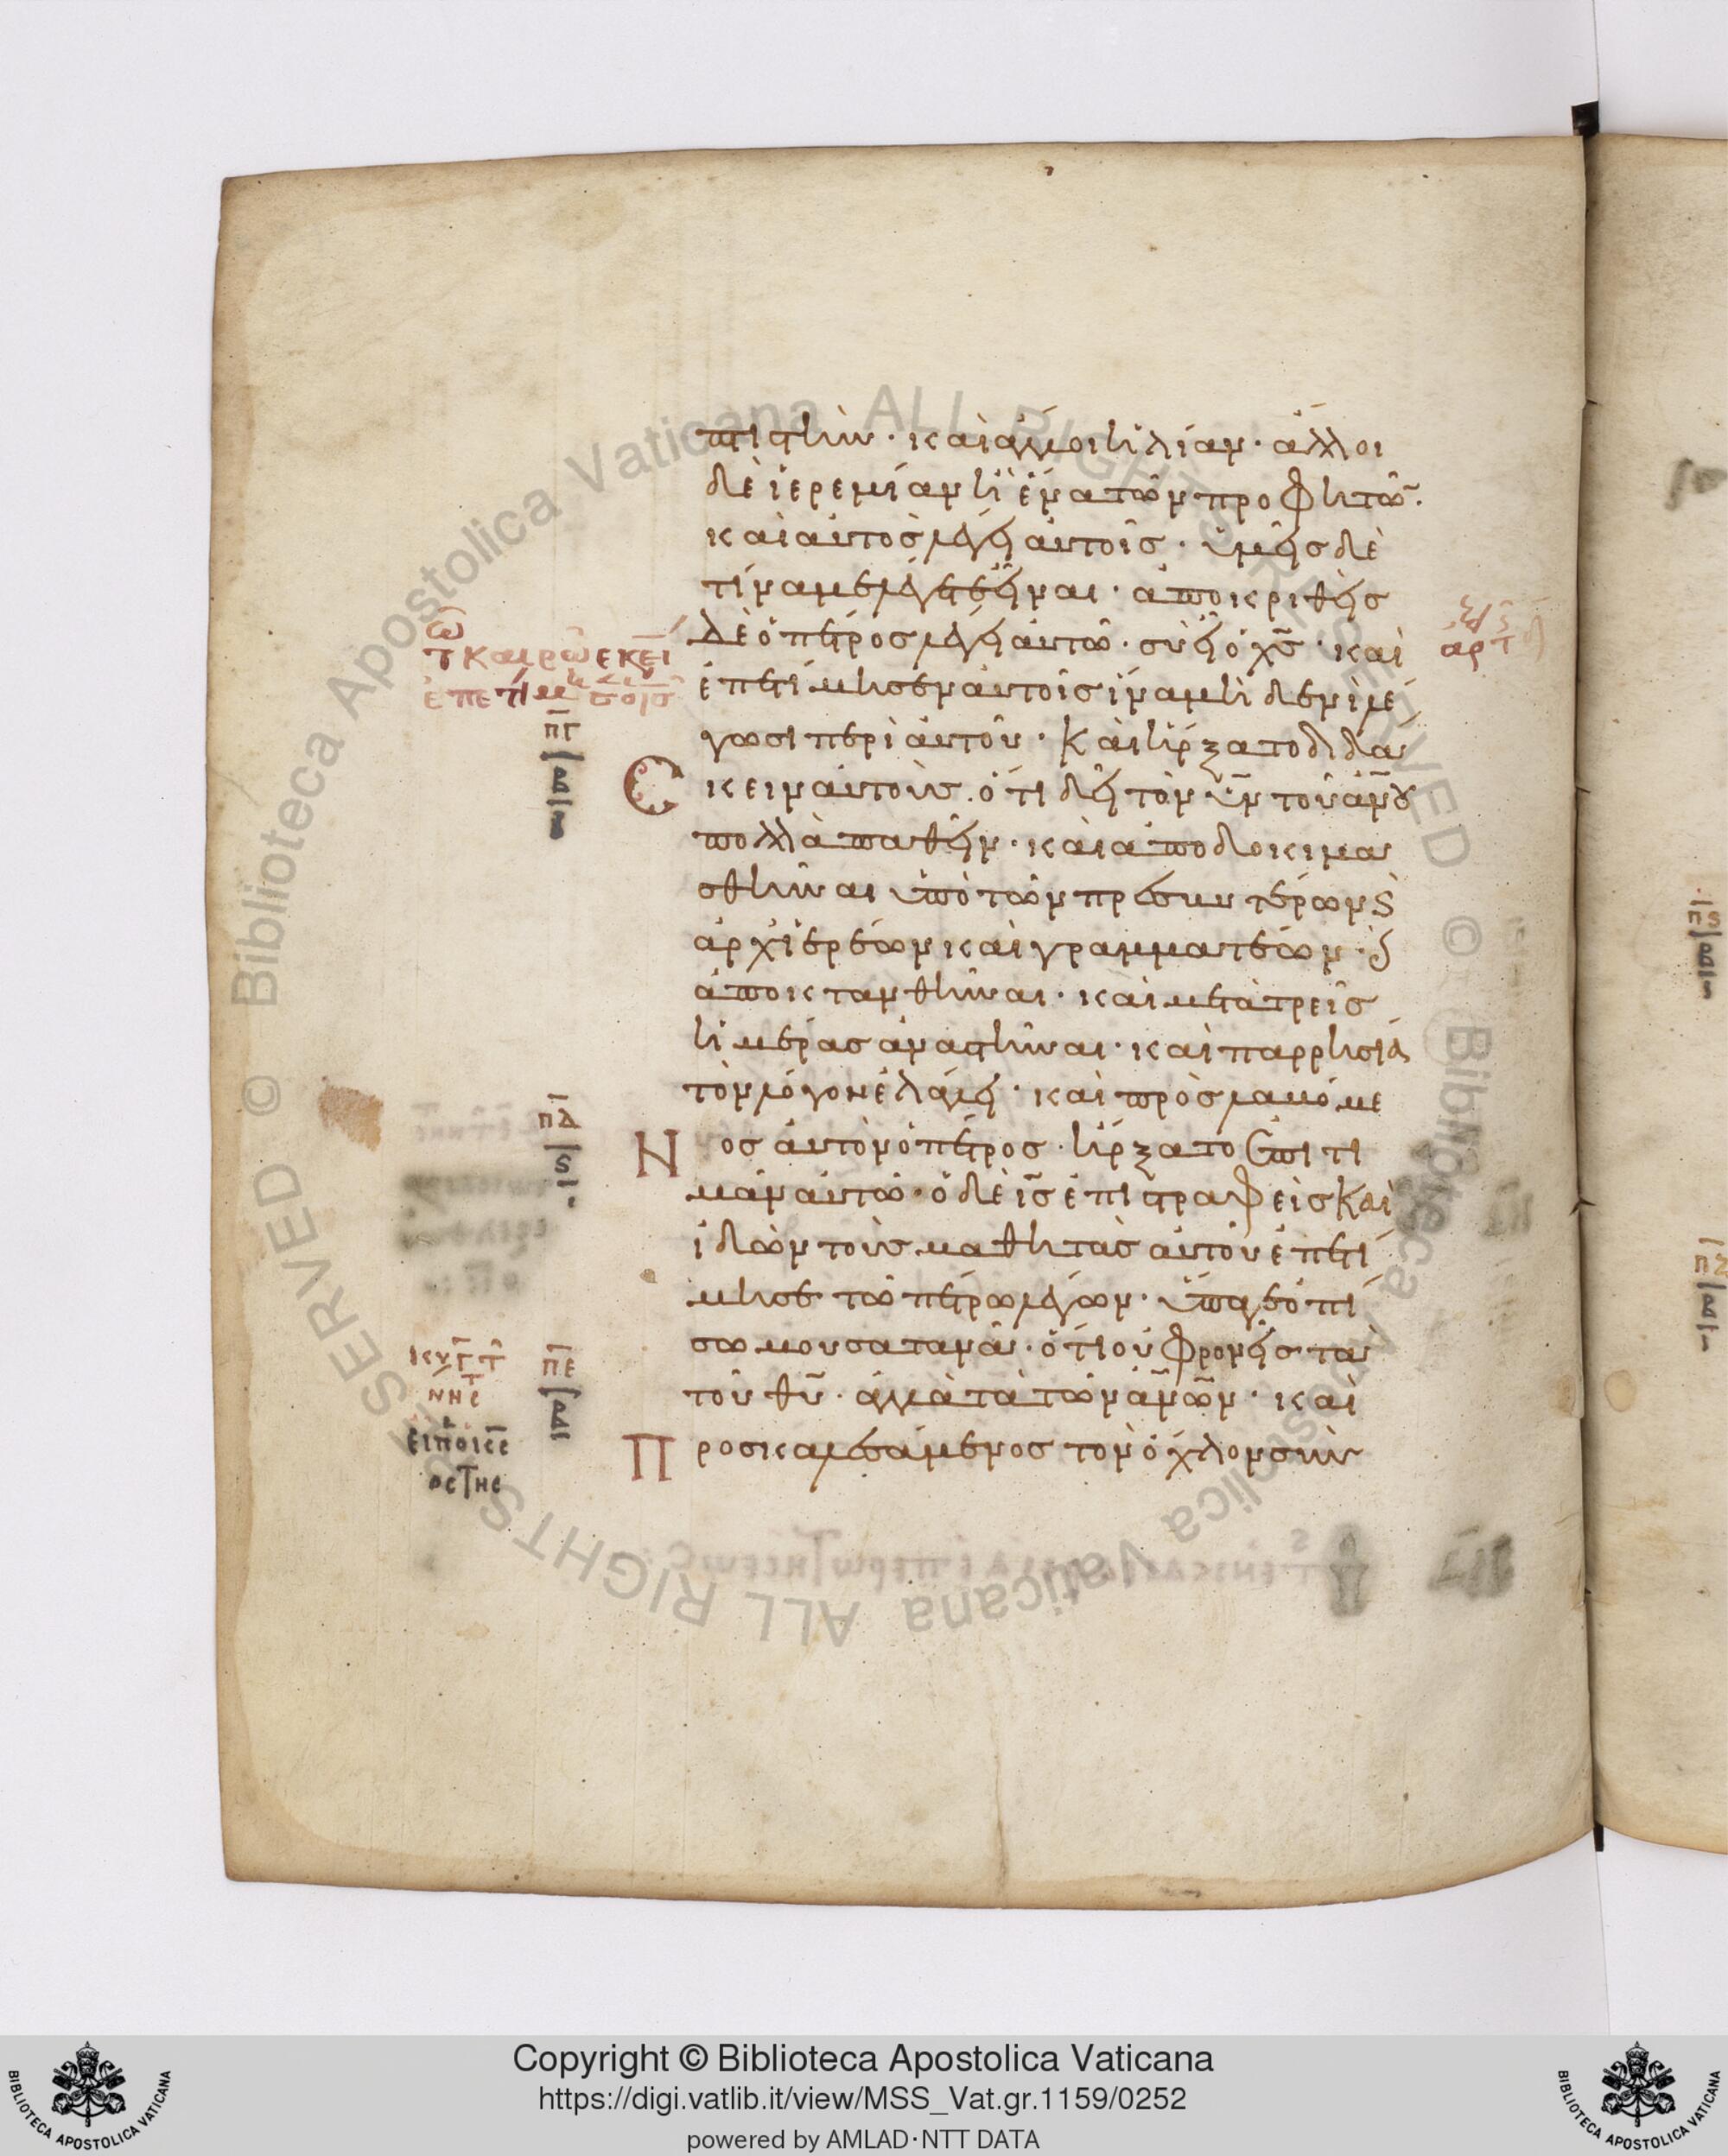 πτιστήν· καὶ ἄλλοι ἡλίαν· ἄλλοι
δὲ ἱερεμίαν ἢ ἕνα τῶν προφητῶ̄·
καὶ αὐτὸς λέγει αὐτοῖς· ὑμεῖς δὲ
τίνα με λέγετε εἶναι· ἀποκριθεὶς
δὲ ὁ πέτρος λέγει αὐτῶ· σὺ εἶ ὁ χ̅ς̅· καὶ
ἐπετίμησεν αὐτοῖς ἵνα μηδενὶ λέ
γωσι περὶ αὐτοῦ· Καὶ ἤρξατο διδά
σκειν αὐτοὺς· ὅτι δεῖ τὸν υ̅ν̅ τοῦ α̅ν̅ο̅υ̅
πολλὰ παθεῖν· καὶ ἀποδοκιμα
σθῆναι ὑπὸ τῶν πρεσβυτέρων ϗ
ἀρχιερέων καὶ γραμματέων· ϗ
ἀποκτανθῆναι· καὶ μετὰ τρεῖς
ἡμέρας ἀναστῆναι· καὶ παρρησία
τὸν λόγον ἐλάλει· καὶ προσλαβόμε
Νος αὐτὸν ὁ πέτρος· ἤρξατο ἐπιτι
μᾶν αὐτῶ· ὁ δὲ ι̅ς̅ ἐπιστραφεὶς καὶ
ἰδὼν τοὺς μαθητὰς αὐτοῦ ἐπετί
μησε τῶ πέτρω λέγων· ὕπαγε ὀπί
σω μου σατανᾶ· ὅτι οὐ φρονεῖς τὰ
τοῦ θ̅υ̅· ἀλλὰ τὰ τῶν α̅ν̅ω̅ν̅· καὶ
Προσκαλεσάμενος τὸν ὄχλον σὺν
τ καιρῶ εκεί
π̅γ̅
β
π̅δ̅
ς
π̅ε̅
β
Copyright © Biblioteca Apostolica Vaticana
https://digi.vatlib.it/view/MSS_Vat.gr.1159/0252
powered by AMLAD·NTT DATA
BIBLIOTECA APOSTOLICA VATICANA
BIBLIOTECA APOSTOLICA VATICANA